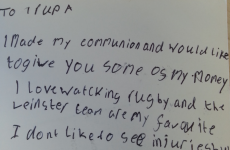 TO IRUPA
I Made my communion and would like
to give you some og my money
I love watcking rugby and the
leinster team are my favouite
I dont like to see injuries